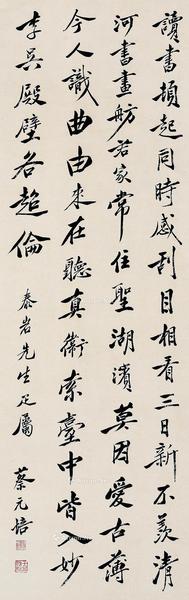 讀書頓起同時感刮目相看三日新不羨清
河書畫舫君家常住聖湖濱莫因愛古薄
今人識曲由來在聽真衛索臺中皆入妙
李吳殿壁各超倫
泰岩先生正屬
蔡元培